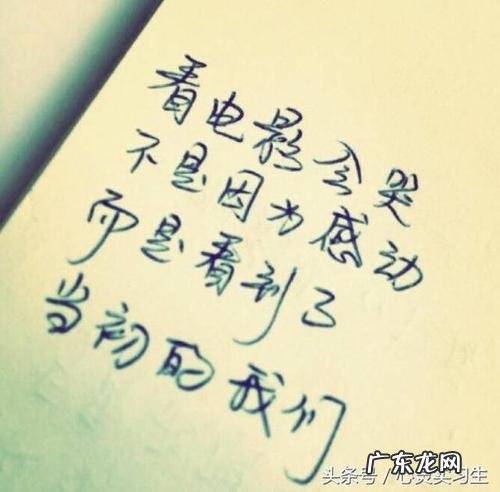 看电影会哭
不是因为感动
而是看到了
当初的我们
广东龙网
头条号/心灵实习生